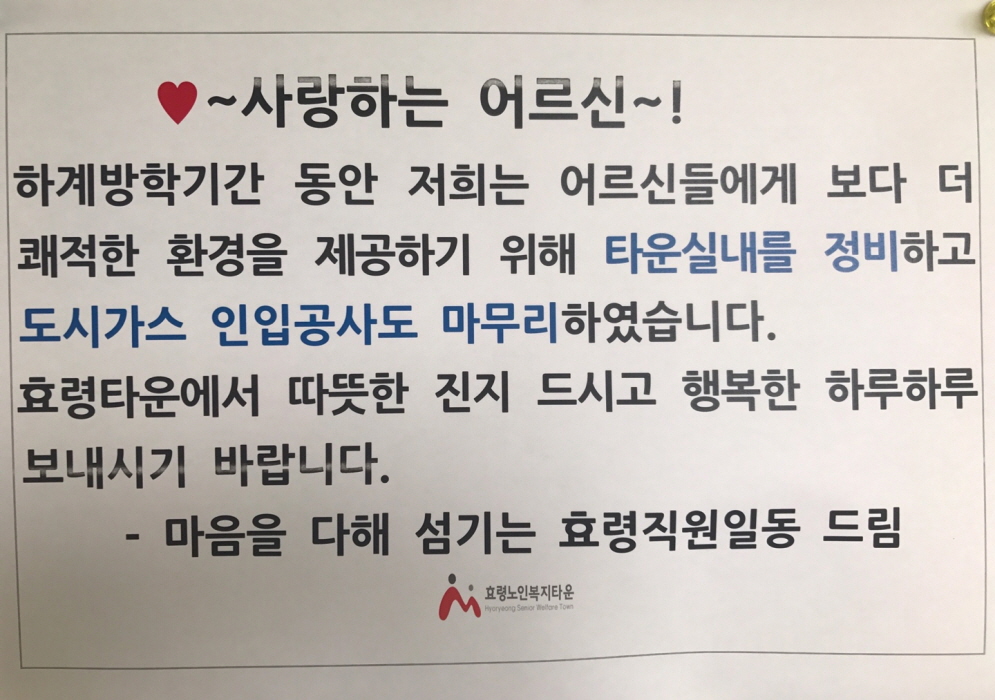 ♥~사랑하는 어르신~!
하계방학기간 동안 저희는 어르신들에게 보다 더
쾌적한 환경을 제공하기 위해 타운실내를 정비하고
도시가스 인입공사도 마무리하였습니다.
효령타운에서 따뜻한 진지 드시고 행복한 하루하루
보내시기 바랍니다.
- 마음을 다해 섬기는 효령직원일동 드림
효령노인복지타운
Hyoryeong Senior Welfare Town